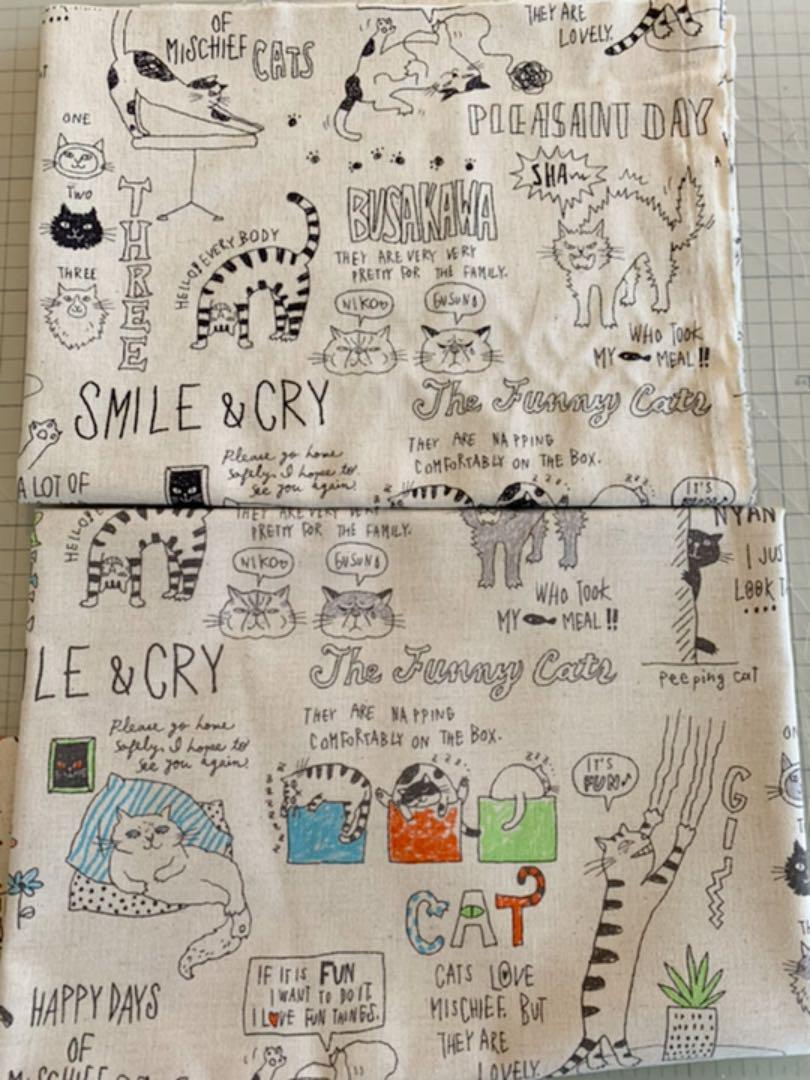 OF
MISCHIEF CATS
THEY ARE
LOVELY.
PLEASANT DAY
ONE
TWO
THREE
THREE
SHA
BUSAKAWA
HELLO! EVERYBODY
THEY ARE VERY VERY
PRETTY FOR THE FAMILY.
NIKO♡
GUSUN
WHO TOOK
MY MEAL!!
SMILE & CRY
The Funny Cats
THEY ARE NAPPING
COMFORTABLY ON THE BOX.
Please go home
safely. I hope to
see you again!
A LOT OF
zzz
zzz
IT'S
HELLO!
THEY ARE VERY VERY
PRETTY FOR THE FAMILY.
NIKO♡
GUSUN
WHO TOOK
MY MEAL!!
NYAN
I JUS
LOOK T
....
Peeping cat
LE & CRY
The Funny Cats
THEY ARE NAPPING
COMFORTABLY ON THE BOX.
Please go home
safely. I hope to
see you again!
zzz
zzz
IT'S
FUN♪
GI
CAT
IF IT IS FUN
I WANT TO DO IT.
I L♥VE FUN THINGS.
CATS LOVE
MISCHIEF. BUT
THEY ARE
LOVELY.
HAPPY DAYS
OF
MISCHIEF